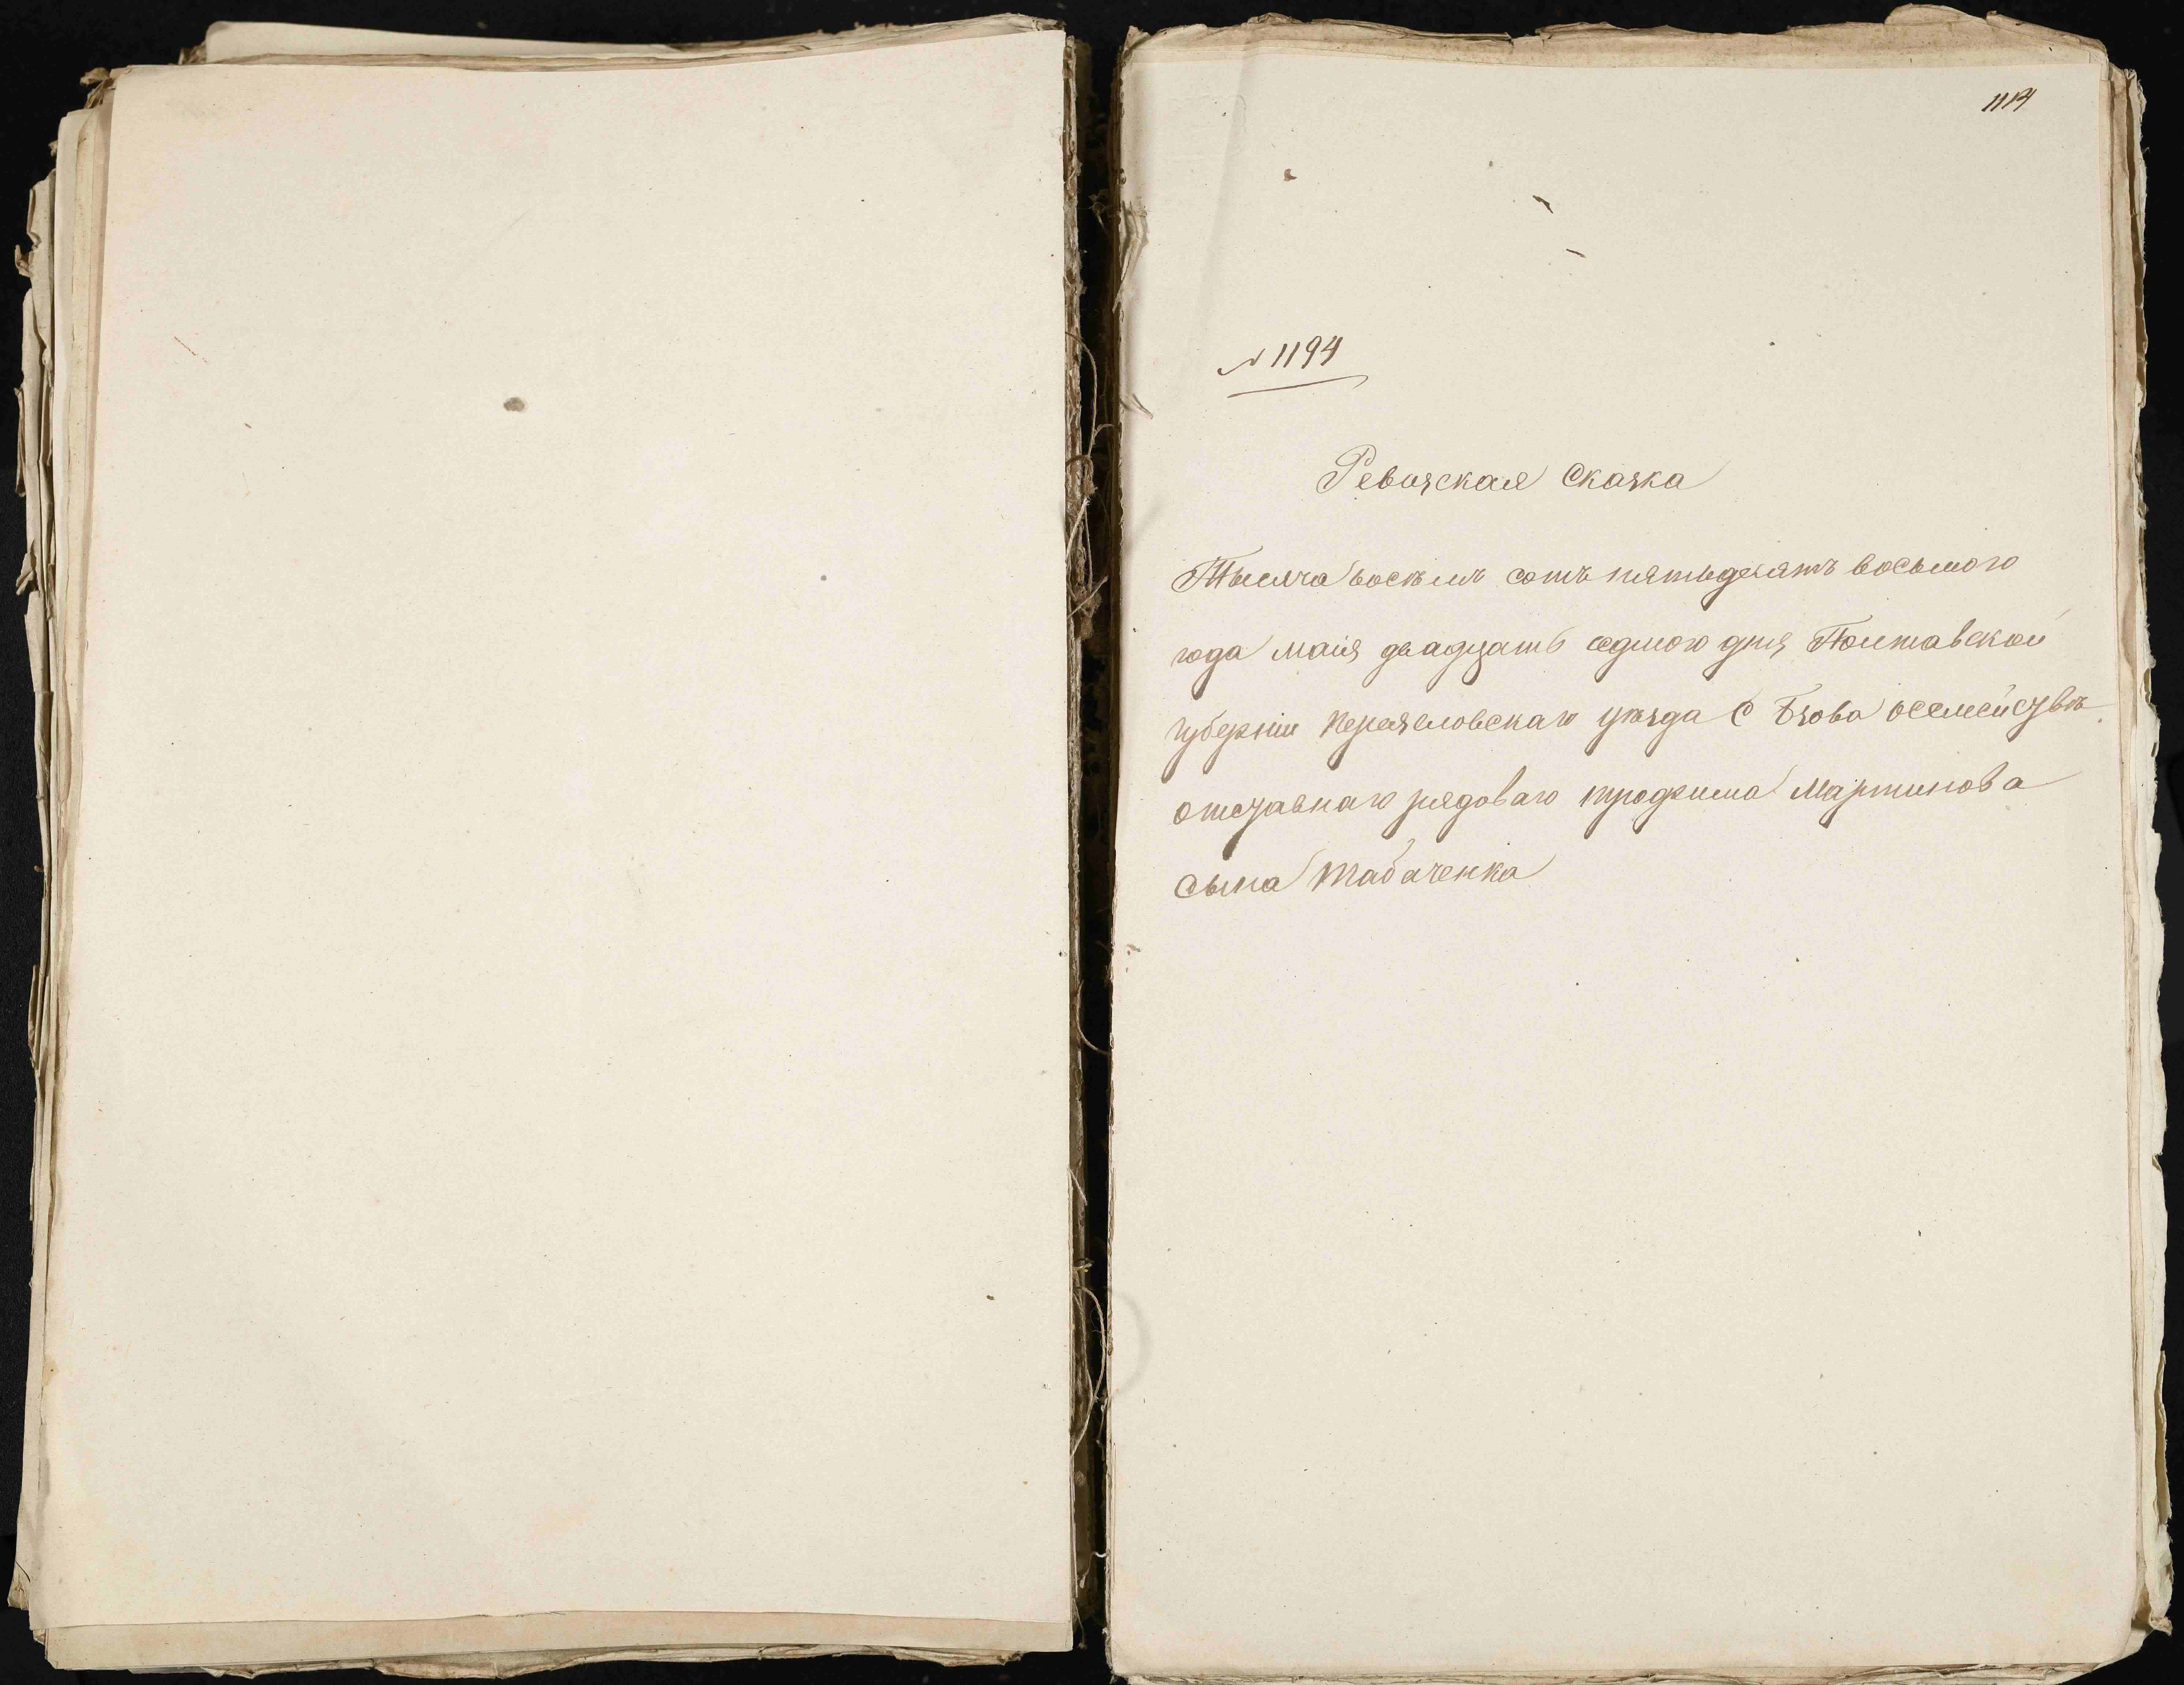 1114
№ 1194
Ревизская Сказка
Тысяча восѣмъ сотъ пятьдесятъ восьмого
года маія двадцать седмого дня Полтавской
губерніи Переясловскаго уѣзда С Бзова осемействѣ
отставнаго рядоваго трофима Мартинова
сына Табаченка